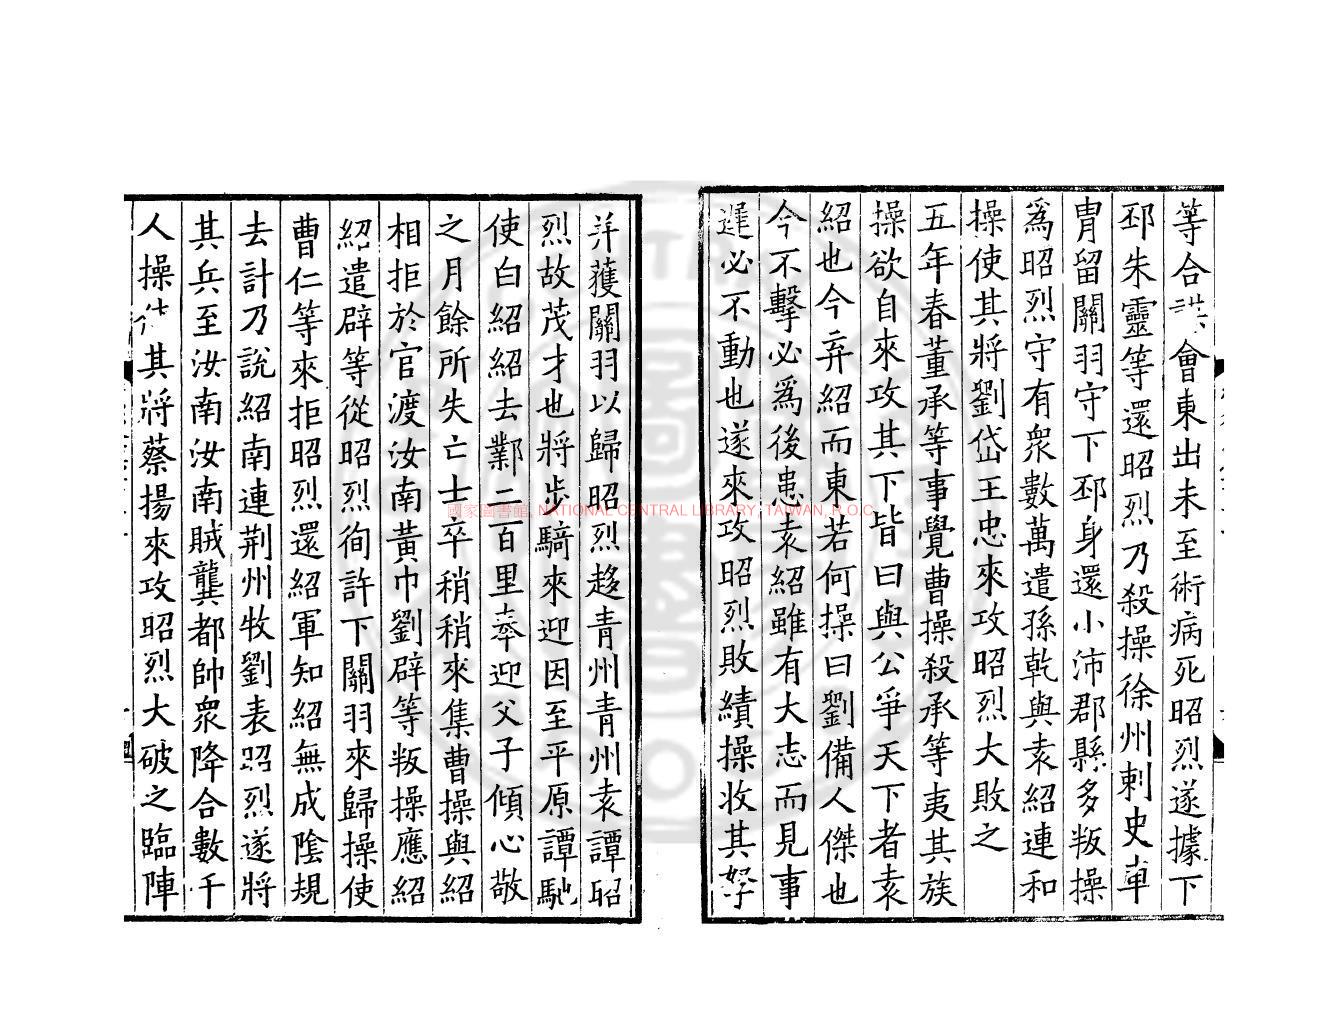 等合謀會東出未至術病死昭烈遂據下
邳朱靈等還昭烈乃殺操徐州刺史車
冑留關羽守下邳身還小沛郡縣多叛操
爲昭烈守有衆數萬遣孫乾與袁紹連和
操使其將劉岱王忠來攻昭烈大敗之
五年春董承等事覺曹操殺承等夷其族
操欲自來攻其下皆曰與公爭天下者袁
紹也今弃紹而東若何操曰劉備人傑也
今不擊必爲後患袁紹雖有大志而見事
遲必不動也遂來攻昭烈敗績操收其孥
并獲關羽以歸昭烈趍青州青州袁譚昭
烈故茂才也將步騎來迎因至平原譚馳
使白紹紹去鄴二百里奉迎父子傾心敬
之月餘所失亡士卒稍稍來集曹操與紹
相拒於官渡汝南黃巾劉辟等叛操應紹
紹遣辟等從昭烈徇許下關羽來歸操使
曹仁等來拒昭烈還紹軍知紹無成陰規
去計乃說紹南連荆州牧劉表昭烈遂將
其兵至汝南汝南賊龔都帥衆降合數千
人操使其將蔡揚來攻昭烈大破之臨陣
國家圖書館, NATIONAL CENTRAL LIBRARY, TAIWAN, R.O.C